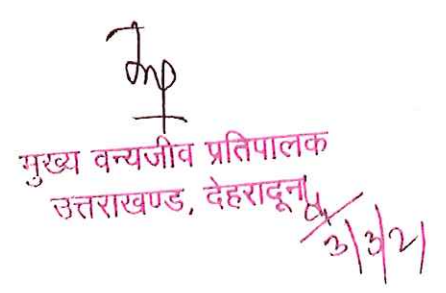 मुख्य वन्यजीव प्रतिपालक
उत्तराखण्ड, देहरादून
3/3/21